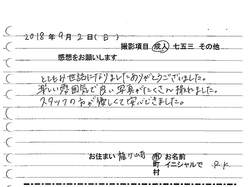 2018年9月2日(日)
撮影項目 成人 七五三 その他
感想をお願いします
とてもお世話になりましたありがとうございました。
楽しい雰囲気で良い写真がたくさん撮れました。
スタッフの方が優しくて安心できました。
お住まい 龍ケ崎 市 お名前
町 イニシャルで R.K
村